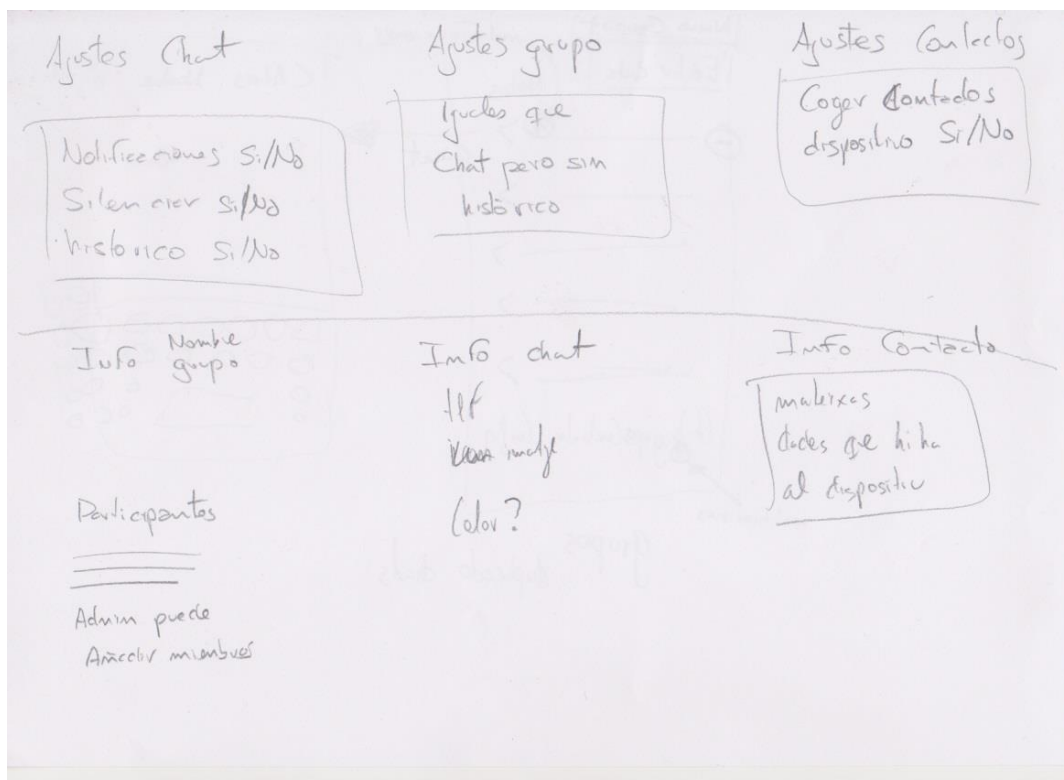 Ajustes Chat
Notificaciones Si/No
Silenciar Si/No
histórico Si/No
Ajustes grupo
Iguales que
Chat pero sin
histórico
Ajustes Contactos
Coger Contactos
dispositivo Si/No
Info Nombre
grupo
Participantes
Admin puede
Añadir miembros
Info chat
tlf
imatge
Color?
Info Contacto
mateixas
dades que hi ha
al dispositiu